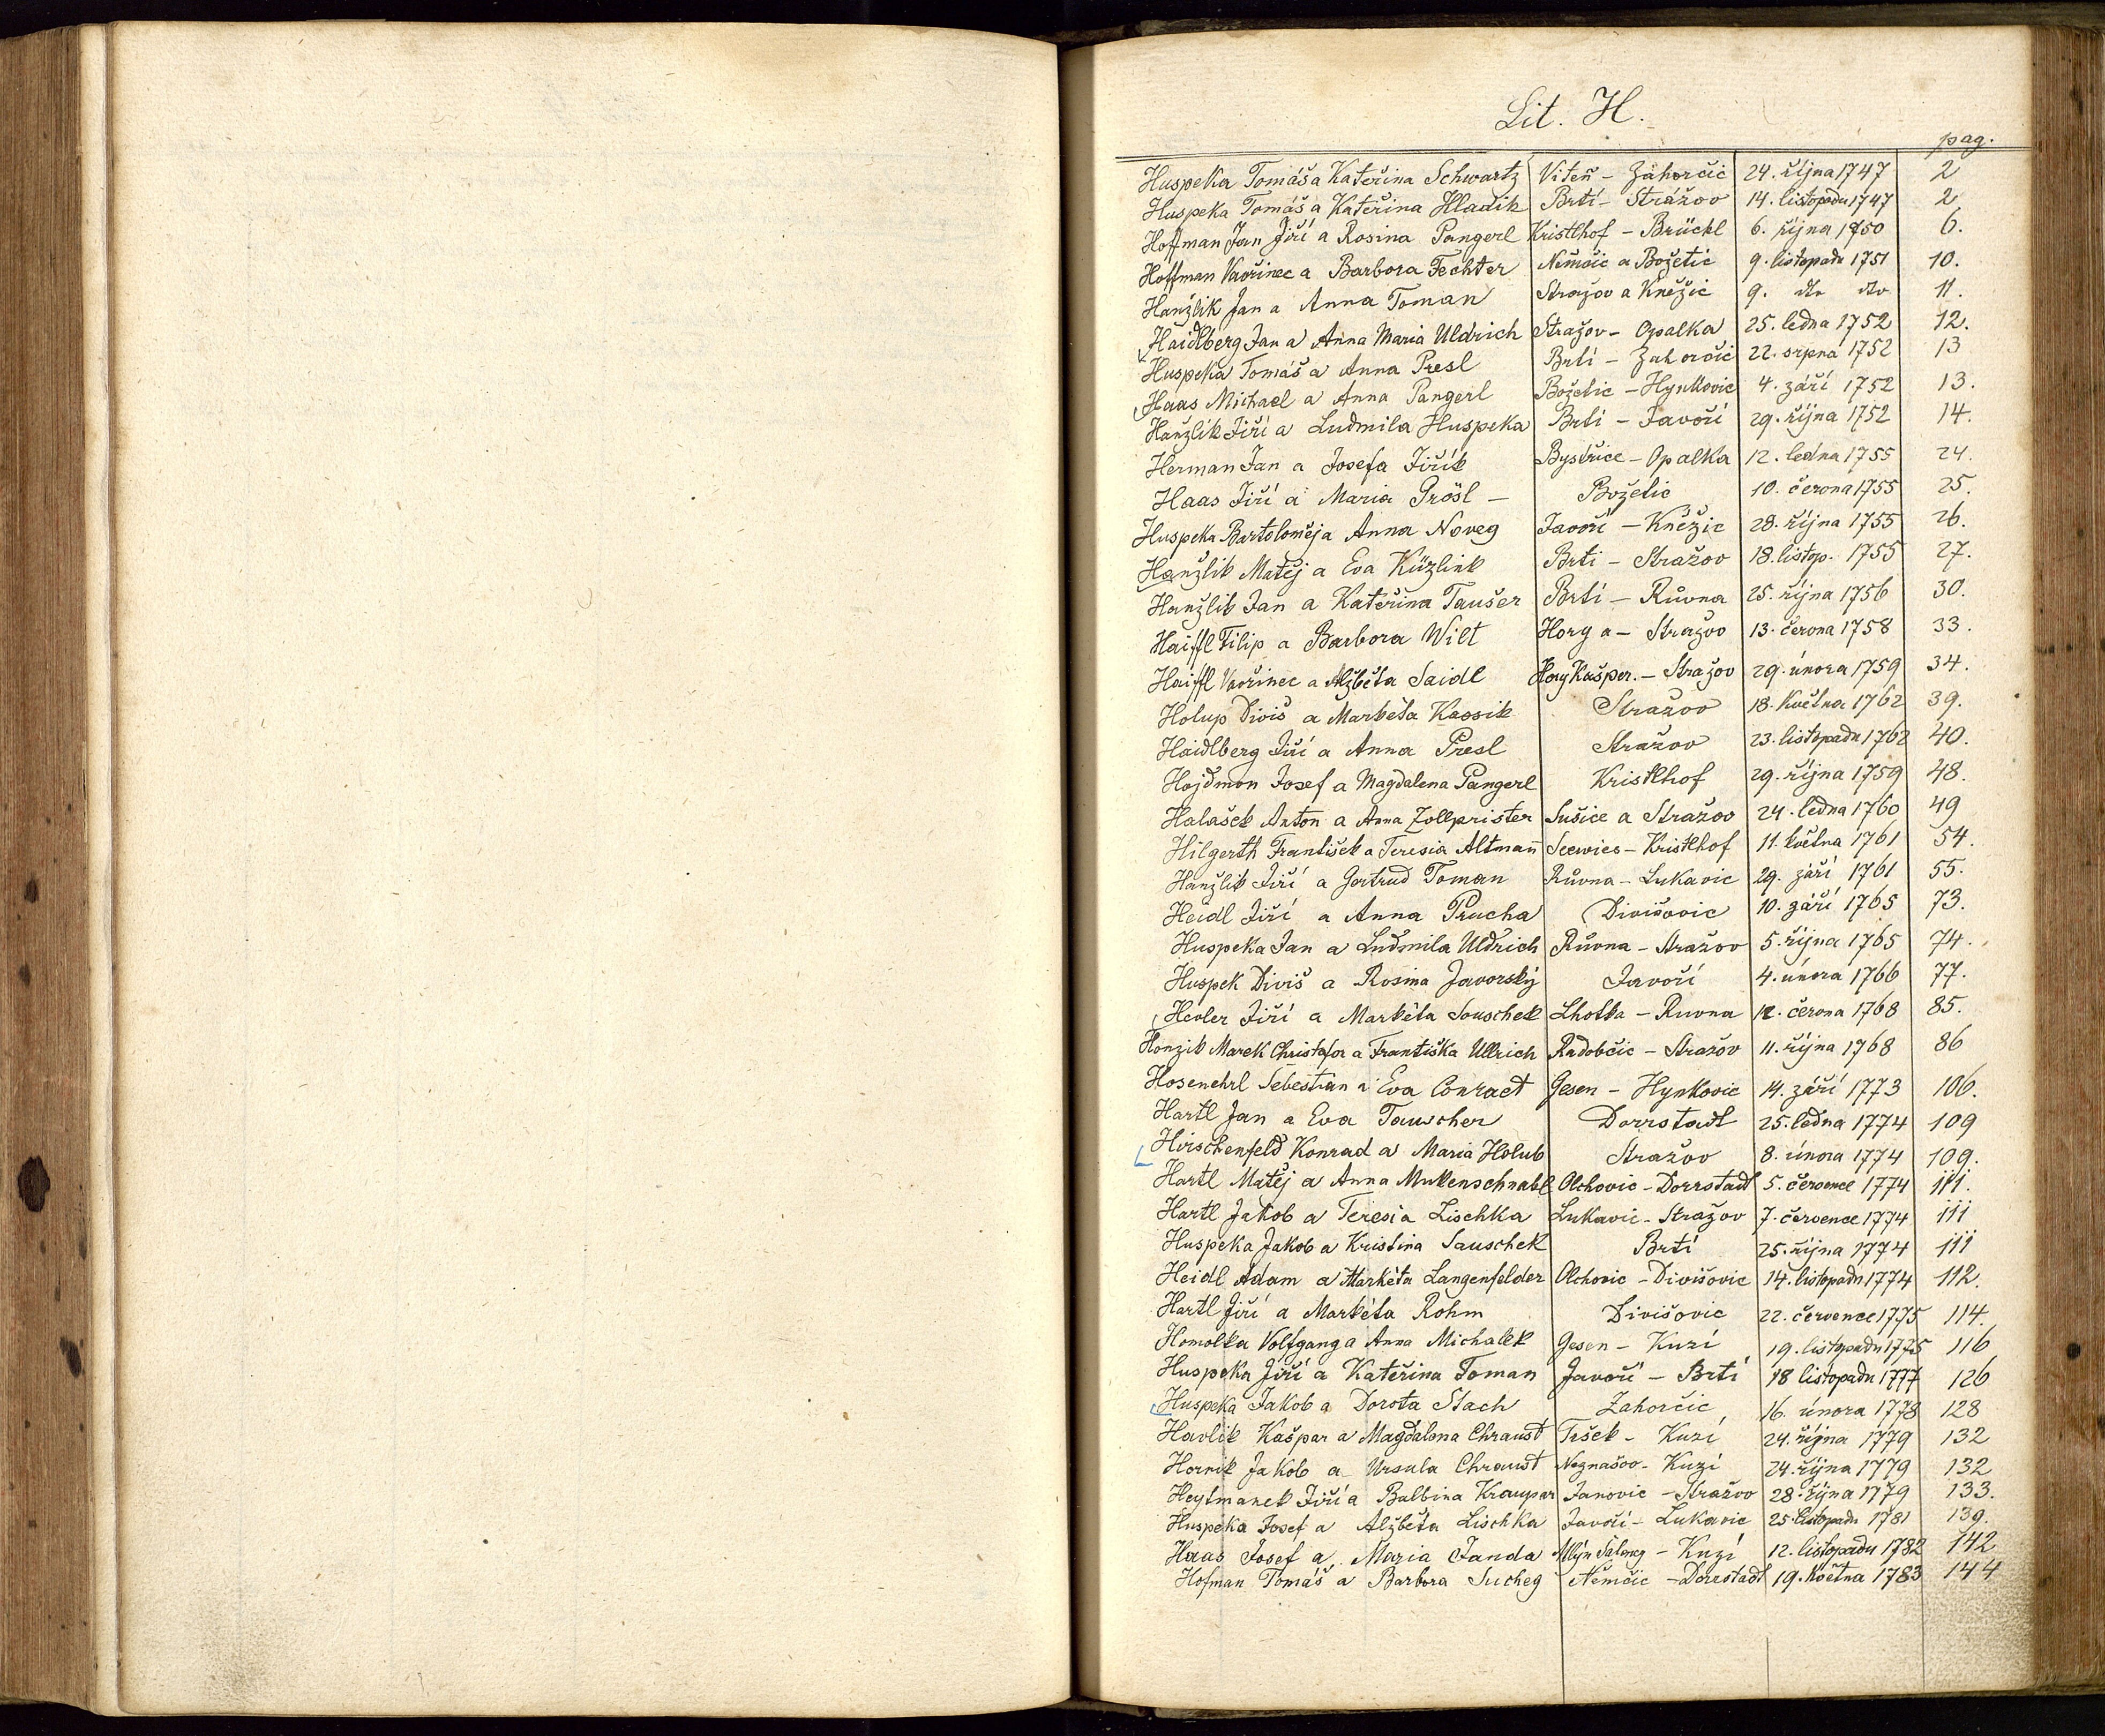 Lit. H.
pag.
Huspeka Tomáš a Kateřina Schwartz Viteň - Zahorčic 24. října 1747 2
Huspeka Tomáš a Kateřina Hladik Brtí - Strážov 14. listopadu 1747 2
Hoffman Jan Jiří a Rosina Pangerl Kristlhof - Brückl 6. října 1750 6.
Hoffman Vavřinec a Barbora Fechter Němčic a Božetic 9. listopadu 1751 10.
Hanžlik Jan a Anna Toman Stražov a Kněžic 9. dto dto 11.
Haidlberg Jan a Anna Maria Uldrich Stražov - Opalka 25. ledna 1752 12.
Huspeka Tomáš a Anna Presl Brtí - Zahorčic 22. srpna 1752 13
Haas Michael a Anna Pangerl Božetic - Hynkovic 4. září 1752 13.
Hanžlik Jiří a Ludmila Huspeka Brtí - Javoří 29. října 1752 14.
Herman Jan a Josefa Jiřík Bystřice - Opalka 12. ledna 1755 24.
Haas Jiří a Maria Prösl - Božetic 10. června 1755 25.
Huspeka Bartoloměj a Anna Noveg Javoří - Kněžic 28. října 1755 26.
Hanžlik Matěj a Eva Küzlink Brti - Stražov 18. listop. 1755 27.
Hanžlik Jan a Kateřina Taušer Brtí - Růvna 25. října 1756 30.
Haiffl Filip a Barbora Wilt Hory a - Stražov 13. června 1758 33.
Haiffl Vavřinec a Alžběta Saidl Hory Kašper. - Stražov 29. února 1759 34.
Holup Diviš a Markéta Kassik Stražov 18. května 1762 39.
Haidlberg Jiří a Anna Presl Stražov 23. listopadu 1762 40.
Hojdmon Josef a Magdalena Pangerl Kristlhof 29. října 1759 48.
Halašek Anton a Anna Zollprister Sušice a Stražov 24. ledna 1760 49
Hilgerth František a Teresia Altmañ Seewies - Kristlhof 11. května 1761 54.
Hanžlik Jiří a Gertrud Toman Růvna - Lukavic 29. září 1761 55.
Heidl Jiří a Anna Prucha Divišovic 10. září 1765 73.
Huspeka Jan a Ludmila Uldrich Růvna - Stražov 5. října 1765 74.
Huspek Diviš a Rosina Javorský Javoří 4. února 1766 77.
Hevler Jiří a Markéta Souschek Lhotka - Ruvna 12. června 1768 85.
Honzik Marek Christofor a Františka Ullrich Radobčic - Stražov 11. října 1768 86
Hosenehrl Šebestian a Eva Conract Gesen - Hynkovic 14. září 1773 106.
Hartl Jan a Eva Tauscher Dorrstadt 25. ledna 1774 109
Hirschenfeld Konrad a Maria Holub Stražov 8. února 1774 109.
Hartl Matěj a Anna Mukenschnabl Olchovic - Dorrstadt 5. července 1774 111.
Hartl Jakob a Teresia Lischka Lukavic - Stražov 7. července 1774 111
Huspeka Jakob a Kristina Sauschek Brtí 25. října 1774 111
Heidl Adam a Markéta Langenfelder Olchovic - Divišovic 14. listopadu 1774 112.
Hartl Jiří a Markéta Rohm Divišovic 22. července 1775 114.
Homolka Volfgang a Anna Michalek Gesen - Kuzí 19. listopadu 1775 116
Huspeka Jiří a Kateřina Toman Javoří - Brtí 18 listopadu 1777 126
Huspeka Jakob a Dorota Stach Zahorčic 16. února 1778 128
Havlik Kašpar a Magdalena Chraust Tršek - Kuzí 24. října 1779 132
Hornik Jakob a Ursula Chraust Neznašov - Kuzí 24. října 1779 132
Heytmanek Jiří a Balbina Kraupar Janovic - Stražov 28. října 1779 133.
Huspeka Josef a Alžběta Lischka Javoří - Lukavic 25. listopadu 1781 139.
Haas Josef a Maria Janda Mlýn - Kuzí 12. listopadu 1782 142
Hofman Tomáš a Barbora Sucheg Němčic - Dorrstadt 19. května 1783 144